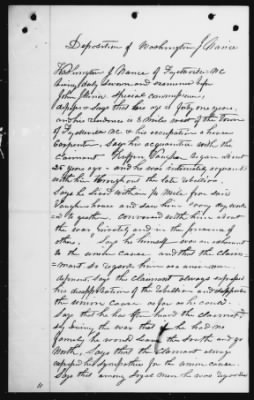 Deposition of Washington J Nance
Washington J Nance of Fayetteville NC
being duly sworn and examined before
John special commissioner,
deposes Says that his age is forty one years,
and his residence is 8 miles west of the town
of Fayetteville NC & his occupation a house
Carpenter, Says his acquaintance with the
Claimant Vaughn began about
25 years ago - and he was intimately acquainted
with him throughout the late rebellion
Says he lived within ½ Mile from said
Vaughn house and saw him every day, worked
together conversed with him about
the war "directly and in the presence of
others," Says he himself was an adherent
to the union cause and that the claim-
mant so regards him as a union man
deponent Says the Claimant always expressed
his disapprobation of the rebellion and
the union cause as far as he could.
Say that he has often heard the claimant
say during the war that if he had no
family he would leave the south and go
North, Says that the Claimant always
expressed his sympathies for the union cause.
Says that among loyal men he was regarded